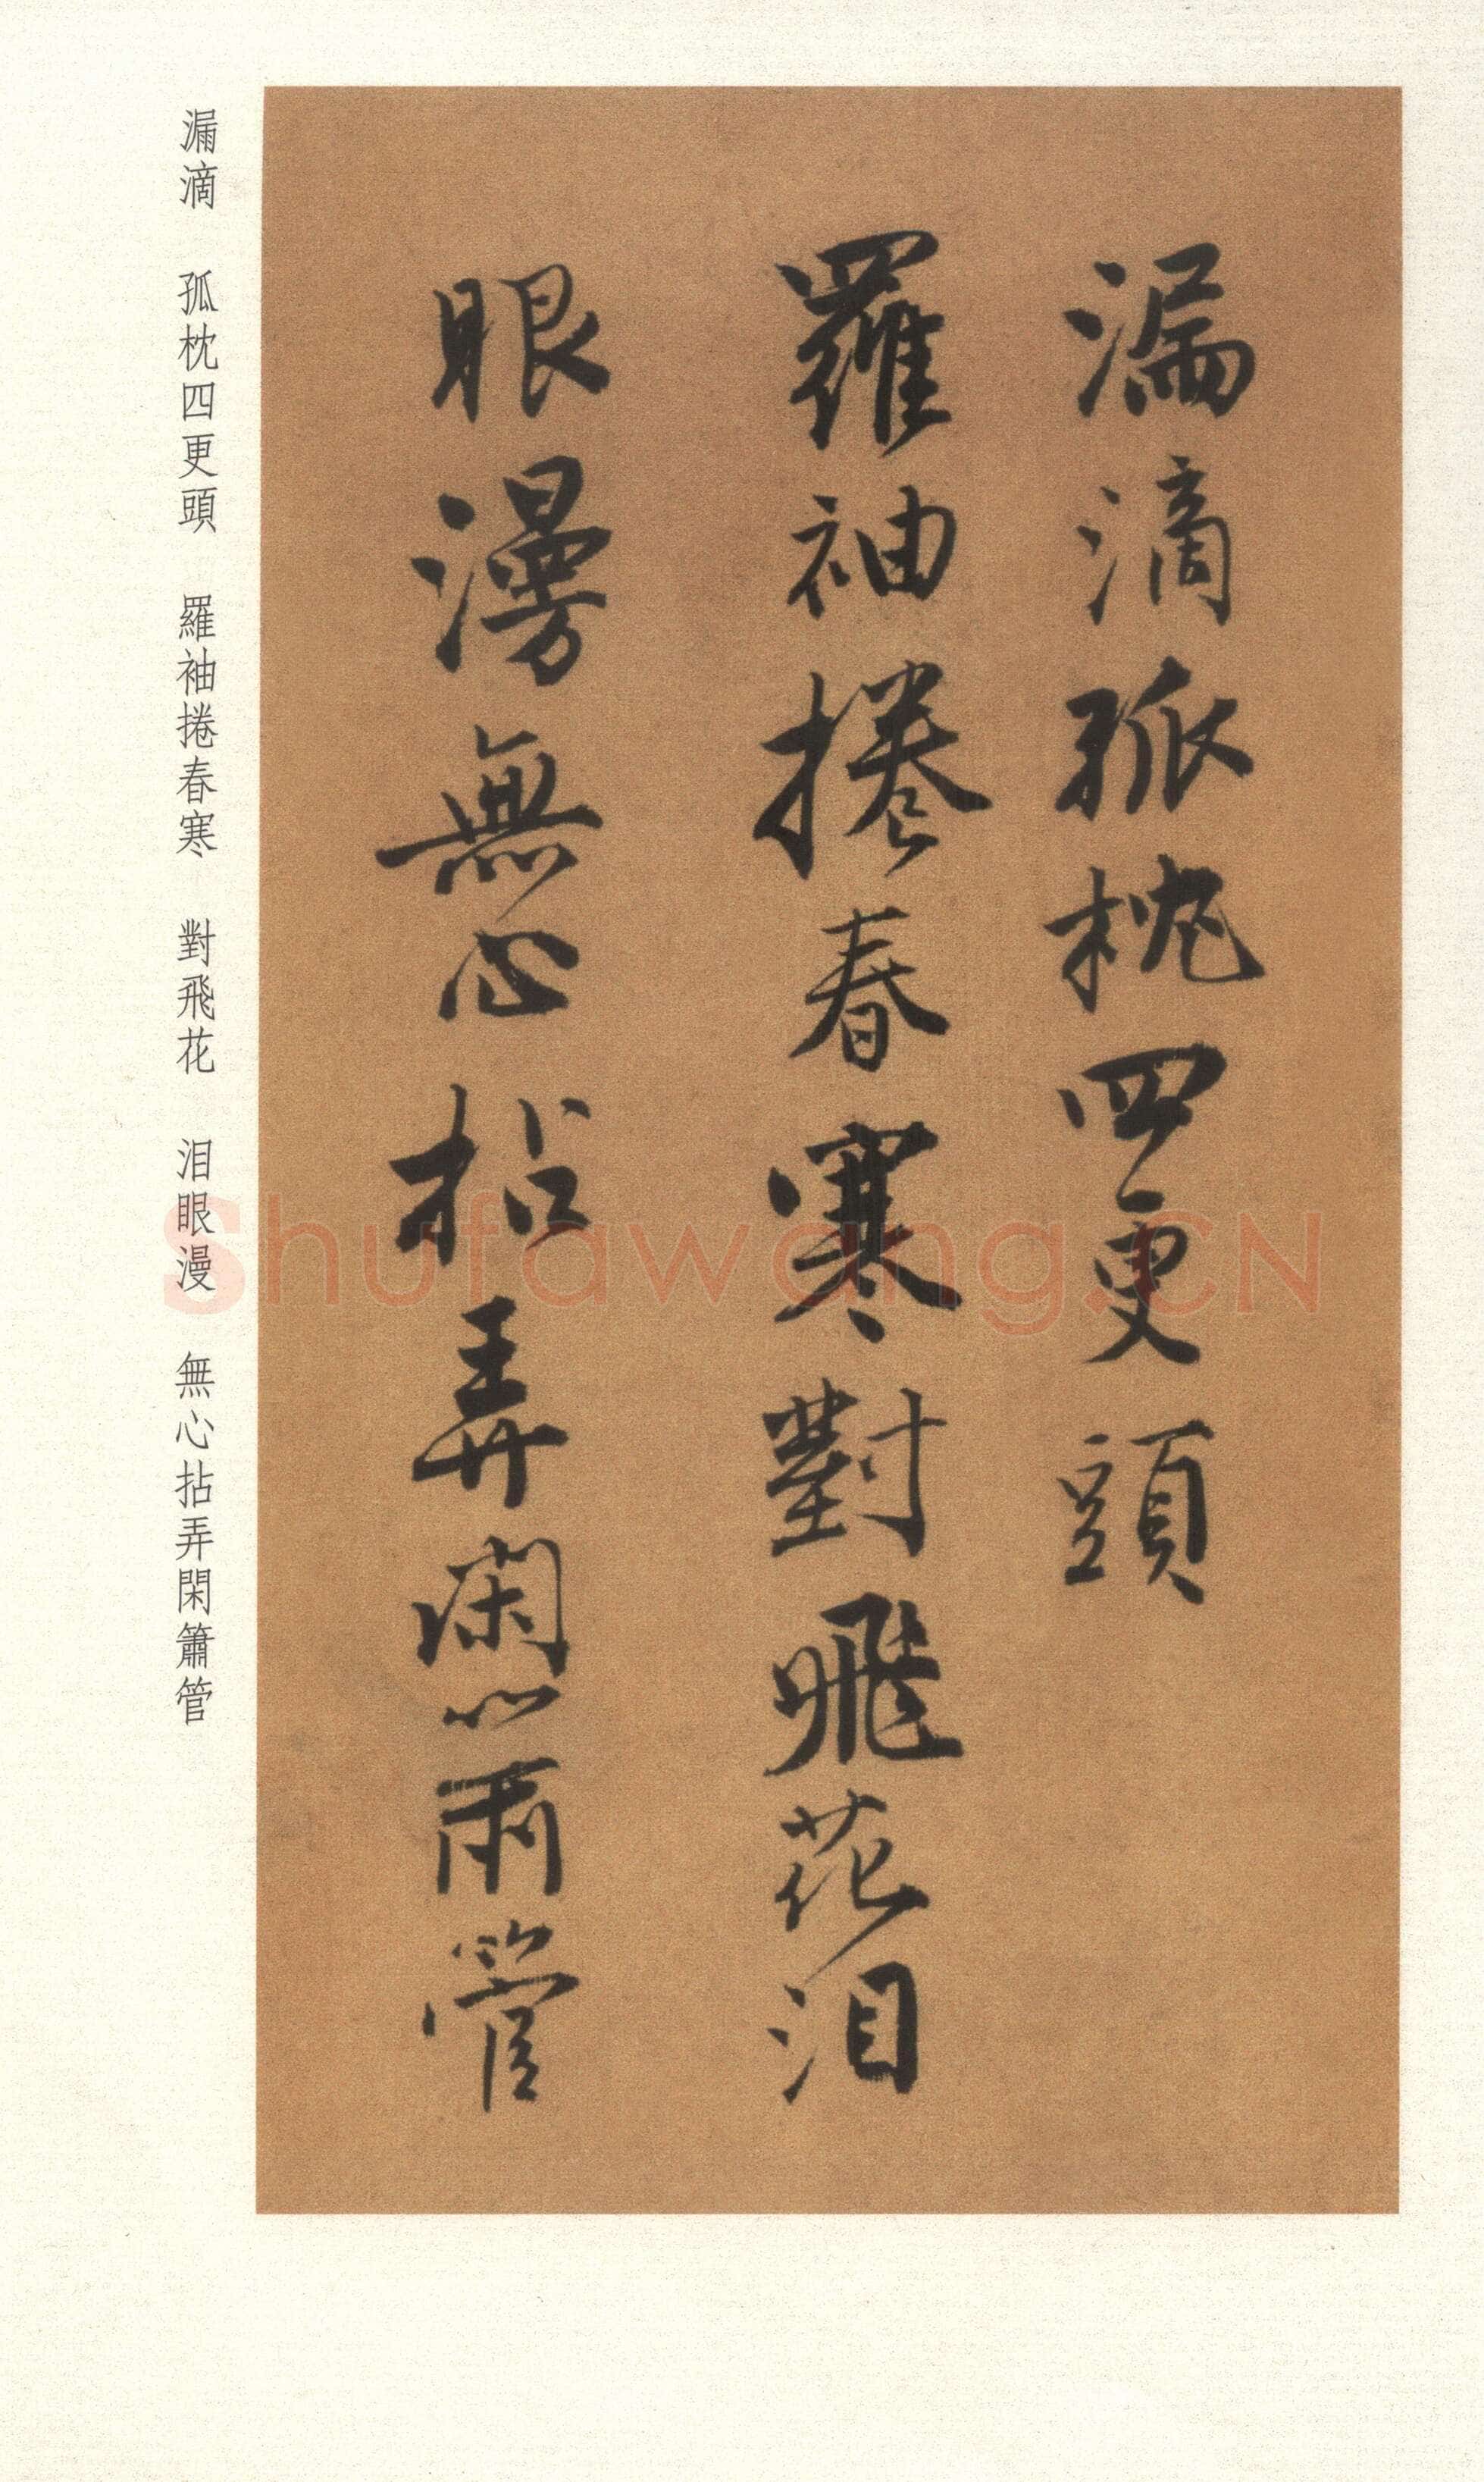 漏滴孤枕四更頭
羅袖捲春寒對飛花泪
眼漫無心拈弄閑簫管
漏滴　孤枕四更頭　羅袖捲春寒　對飛花　泪眼漫　無心拈弄閑簫管
Shufawang.CN